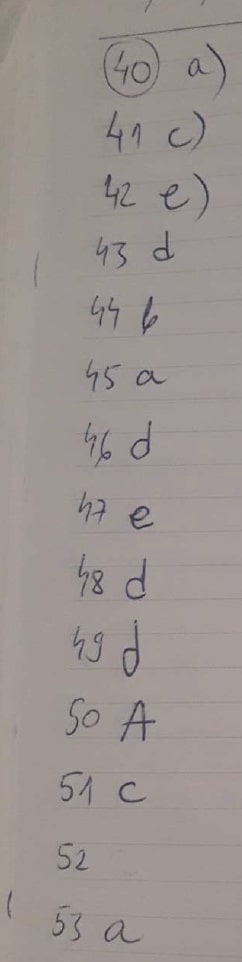 40 a)
41 c)
42 e)
43 d
44 b
45 a
46 d
47 e
48 d
49 d
50 A
51 c
52
53 a